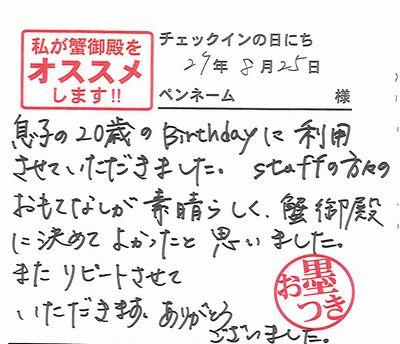 私が蟹御殿を
オススメ
します!!
チェックインの日にち
27年8月25日
ペンネーム 様
息子の20歳のBirthdayに利用
させていただきました。staffの方々の
おもてなしが素晴らしく、蟹御殿
に決めてよかったと思いました。
またリピートさせて
いただきます。ありがとう
ございました。
お墨つき